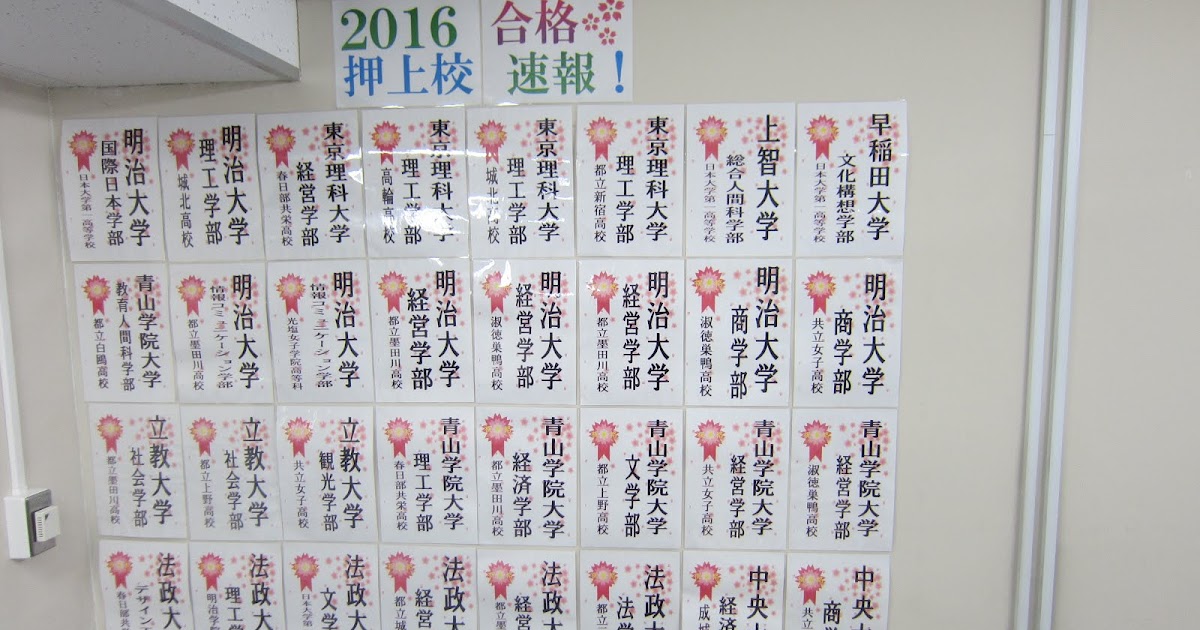 2016
押上校
合格
速報！
早稲田大学
文化構想学部
日本大学第一高等学校
上智大学
総合人間科学部
日本大学第一高等学校
東京理科大学
理工学部
都立新宿高校
東京理科大学
理工学部
城北高校
東京理科大学
理工学部
高輪高校
東京理科大学
経営学部
春日部共栄高校
明治大学
理工学部
城北高校
明治大学
国際日本学部
日本大学第一高等学校
明治大学
商学部
共立女子高校
明治大学
商学部
淑徳巣鴨高校
明治大学
経営学部
都立墨田川高校
明治大学
経営学部
淑徳巣鴨高校
明治大学
経営学部
都立墨田川高校
明治大学
情報コミュニケーション学部
光塩女子学院高等科
明治大学
情報コミュニケーション学部
都立墨田川高校
青山学院大学
教育人間科学部
都立白鴎高校
青山学院大学
経営学部
淑徳巣鴨高校
青山学院大学
経営学部
共立女子高校
青山学院大学
文学部
都立上野高校
青山学院大学
経済学部
都立墨田川高校
青山学院大学
理工学部
春日部共栄高校
立教大学
観光学部
共立女子高校
立教大学
社会学部
都立上野高校
立教大学
社会学部
都立墨田川高校
中央大
商学
共立
中央大
経済
成城
法政大
法学
都立
法政大
経営
都立墨
法政大
経営
都立城
法政大
文学
日本大学第
法政大
理工
明治学院
法政大
デザイン
春日部共